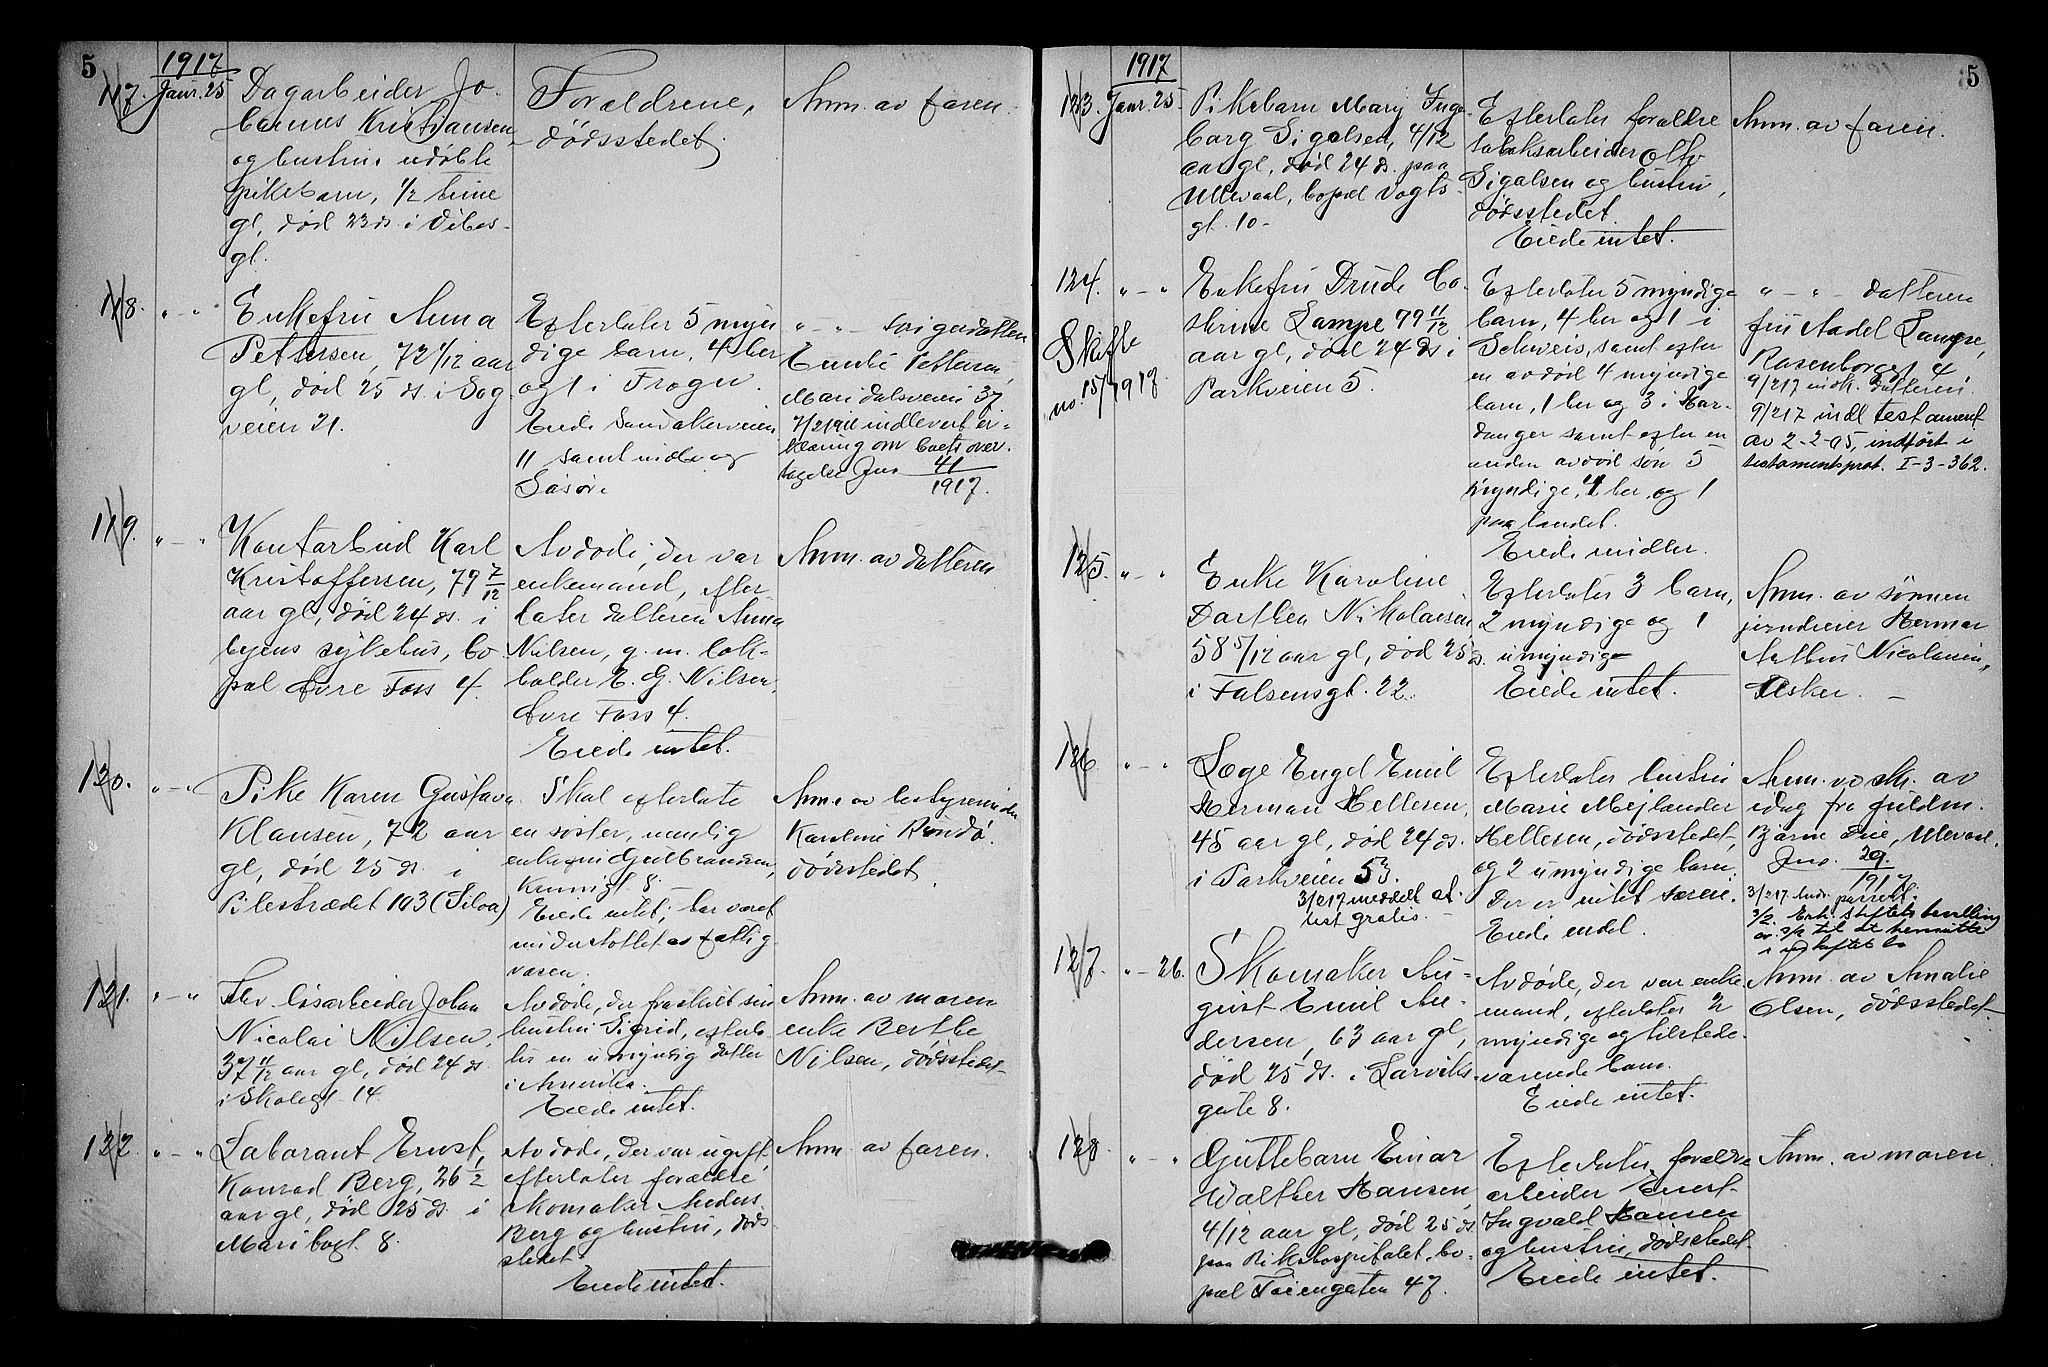 5
1917
117. Janr. 25
Dagarbeider Jo-
hannes Kristiansen
og hustrus udøbte
pikebarn, 1/2 time
gl, død 23 ds. i Vibes-
gt.
Forældrene,
dødsstedet.
Anm. av faren.
118. " — "
Enkefru Anna
Pettersen, 72 1/12 aar
gl, død 25 ds. i Sog-
veien 21.
Efterlater 5 myn
dige barn, 4 her
og 1 i Frogn.
Eiede Sandakerveien
11 samt indbo og
Løsøre
" — " svigerdatter
Pettersen,
Maridalsveien 37
indlevert er-
klæring om boets over-
tagelse Jnr. 41/1917.
119. " — "
Kontorbud Karl
Kristoffersen, 79 7/12
aar gl, død 24 ds. i
byens sykehus, bo-
pæl Øvre Foss 4.
Avdøde, der var
enkemand, efter-
later datteren Anna
Nilsen, g. m. bok-
holder E. G. Nilsen,
Øvre Foss 4.
Eiede intet.
Anm. av datteren
120. " — "
Pike Karen Gustava
Klausen, 72 aar
gl, død 25 ds. i
Pilestrædet 103 (Silva)
Skal efterlate
en søster, nemlig
enkefru Gulbrandsen,
8.
Eiede intet; har været
understøttet av fattig-
væsen.
Anm. av bestyrerinden
Karoline
dødsstedet.
121. " — "
Johan
Nicolai Nilsen,
37 11/12 aar gl, død 24 ds.
i Skolegt. 14
Avdøde, der fraskilt sin
hustru Sigrid, efterla-
ter en umyndig datter
i Amerika.
Eiede intet.
Anm. av moren
enke Berthe
Nilsen, dødsstedet
122. " — "
Laborant Ernst
Konrad Berg, 26 1/2
aar gl, død 25 ds. i
Maribogt. 8.
Avdøde, der var ugift,
efterlater forældre
skomaker Anders
Berg og hustru, døds-
stedet.
Eiede intet.
Anm. av faren.
5
1917
123. Janr. 25
Pikebarn Mary Inge-
borg Sigalsen, 4/12
aar gl, død 24 ds. paa
Ullevaal, bopæl Vogts-
gt. 10-
Efterlater forældre
tobaksarbeider Otto
Sigalsen og hustru,
dødsstedet.
Eiede intet.
Anm. av faren.
124. " — "
Skifte
no. 15/1918
Enkefru Drude Ca-
thrine Lampe 79 11/12
aar gl, død 24 ds. i
Parkveien 5.
Efterlater 5 myndige
barn, 4 her og 1 i
Schweis, samt efter
en avdød 4 myndige
barn, 1 her og 3 i Har-
danger samt efter en
anden avdød søn 5
myndige, 4 her og 1
paa landet.
Eiede midler.
" — " datteren
frk Aadel Lampe,
Rosenborggt. 4.
9/2 17 datteren.
9/2 17 indl testament
av 2-2-05, indført i
testamentsprot. I-3-362.
125. " — "
Enke Karoline
Dorthea Nikolaisen
58 5/12 aar gl, død 25 ds.
i Falsensgt. 22.
Efterlater 3 barn,
2 myndige og 1
umyndige
Eiede intet.
Anm. av sønnen
jerndreier Herman
Nicolaisen,
Asker. —
126. " — "
Læge Engel Emil
Herman Hellesen,
45 aar gl, død 24 ds.
i Parkveien 53.
3/2 17 meddelt at-
test gratis. —
Efterlater hustru
Marie Mejlænder
Hellesen, dødsstedet,
og 2 umyndige barn.
Der er intet særeie.
Eiede endel.
Anm. av
idag fra fuldm.
Bjarne Due, Ullevaal.
Jnr. 29/1917
3/2 17
3/2. skiftets bevilling
til at hensitte
i uskiftet bo
127. " — 26.
Skomaker Au-
gust Emil An-
dersen, 63 aar gl,
død 25 ds. i Larviks-
gate 8.
Avdøde, der var enke-
mand, efterlater 1/2
myndige og tilstede-
værende barn.
Eiede intet.
Anm. av Amalie
Olsen, dødsstedet
128. " — "
Guttebarn Einar
Walther Hansen,
4/12 aar gl, død 25 ds.
paa Rikshospitalet, bo-
pæl Tøiengaten 47.
Efterlater forældre
arbeider Enert
Ingvald Hansen
og hustru, dødsstedet
Eiede intet.
Anm. av moren